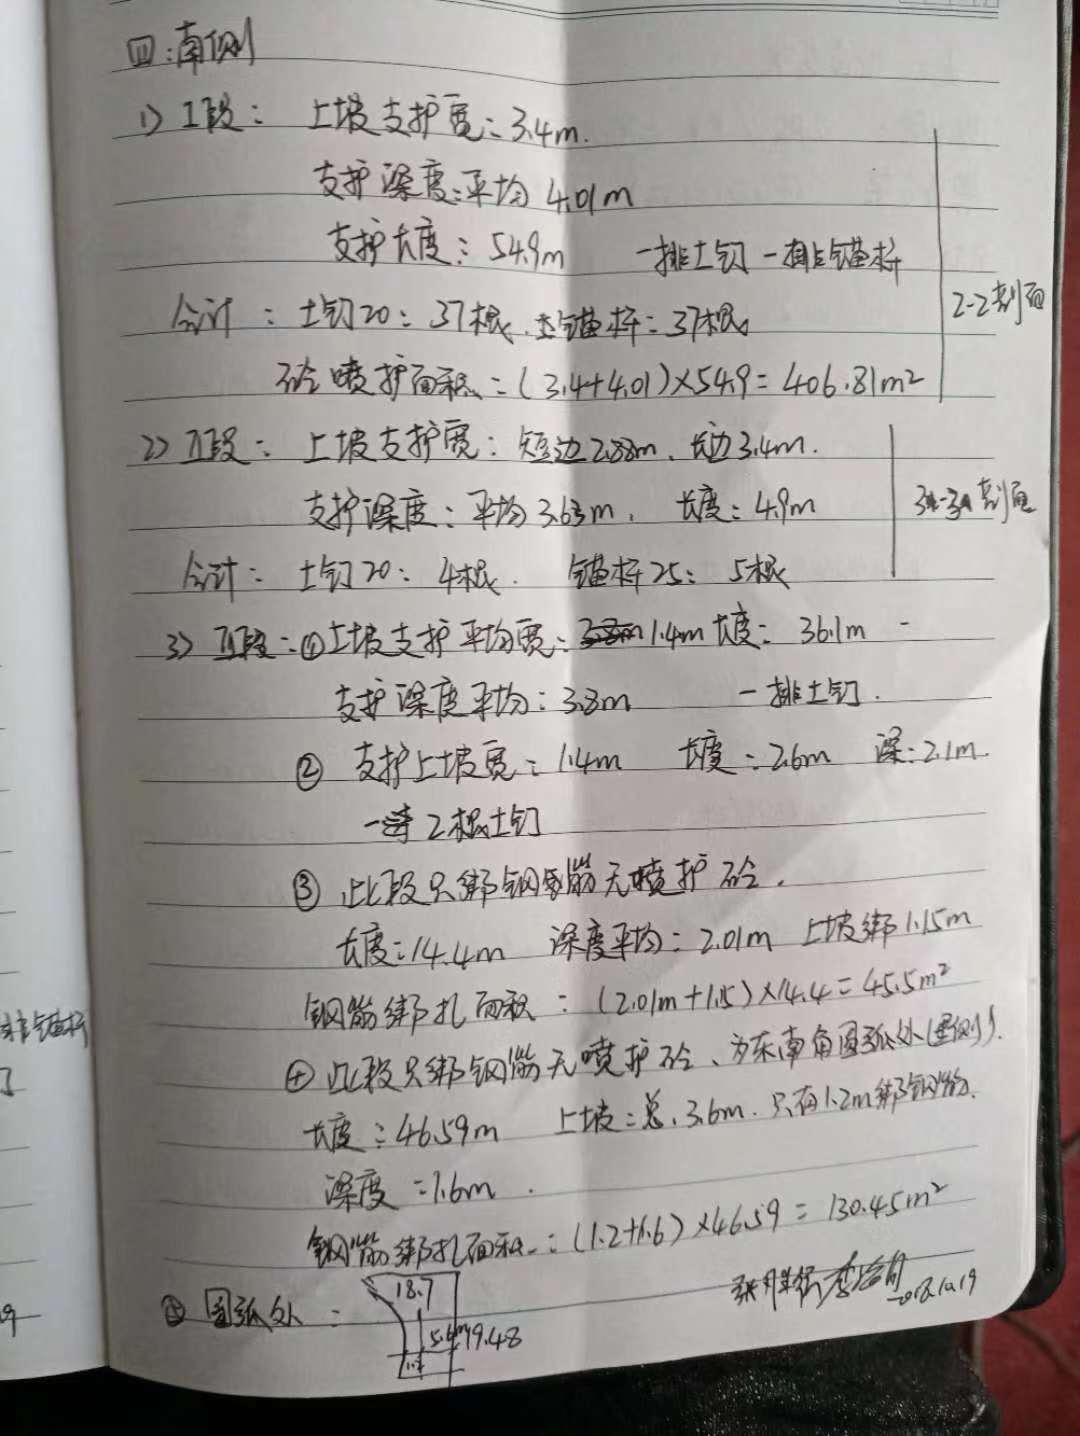 四:南侧
1) I段: 上坡支护宽:3.4m.
支护深度:平均 4.01m
支护长度:54.9m 一排土钉 一排锚杆
合计:土钉20:37根. 锚杆:37根
2-2剖面
砼喷护面积:=(3.4+4.01)×54.9=406.81m²
2) II段:上坡支护宽:短边2.88m、长边3.4m.
支护深度:平均3.63m, 长度:4.9m
剖面
合计:土钉20:4根. 锚杆25:5根
3) III段:①上坡支护平均宽:1.4m 长度:36.1m
支护深度平均:3.8m 一排土钉.
② 支护上坡宽:1.4m 长度:2.6m 深:2.1m.
一 2根土钉
③ 此段只绑钢筋无喷护砼.
长度:14.4m 深度平均:2.01m 上坡绑1.15m
钢筋绑扎面积:(2.01m+1.15)×14.4=45.5m²
④ 此段只绑钢筋无喷护砼、为东南角圆弧处
长度:46.59m 上坡:总.3.6m.只有1.2m绑钢筋.
深度=1.6m.
钢筋绑扎面积:(1.2+1.6)×46.59=130.45m²
圆弧处:
18.7
9.48
2018.10.19
锚杆